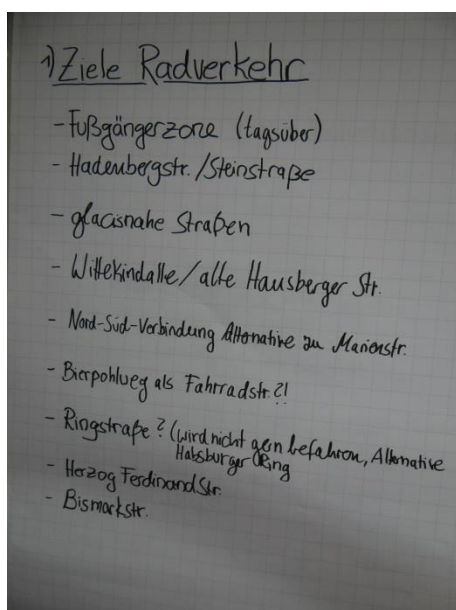 1) Ziele Radverkehr
- Fußgängerzone (tagsüber)
- Hadenbergstr./Steinstraße
- glacisnahe Straßen
- Wittekindalle/alte Hausberger Str.
- Nord-Süd-Verbindung Alternative zu Marienstr.
- Bierpohlweg als Fahrradstr.?!
- Ringstraße? (wird nicht gern befahren, Alternative
Habsburger Ring
- Herzog Ferdinand Str.
- Bismarkstr.